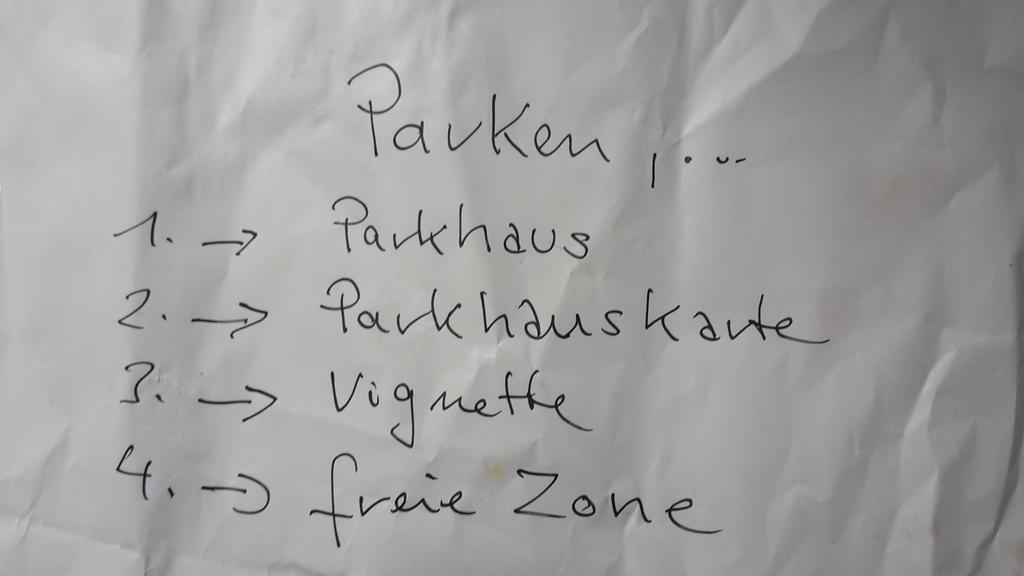 Parken, ...
1. → Parkhaus
2. → Parkhauskarte
3. → Vignette
4. → freie Zone